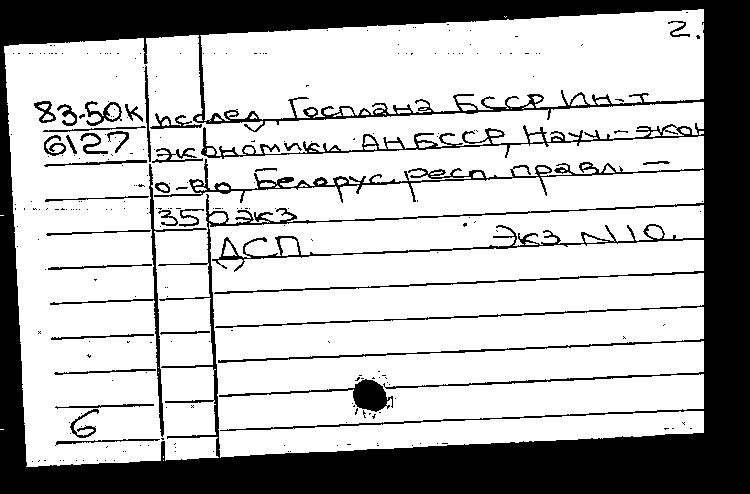 2.
83-50К исслед, Госплана БССР, Ин-т
6127 экономики АН БССР, Науч.-экон
о-во, Белорус. респ. правл. —
350 экз.
ДСП. Экз N 10.
6